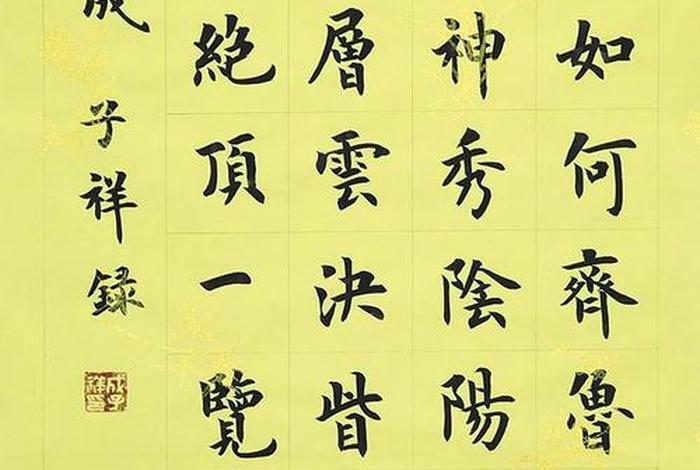 如何齊魯
神秀陰陽
層雲決眥
絶頂一覽
成子祥録
成子
祥印